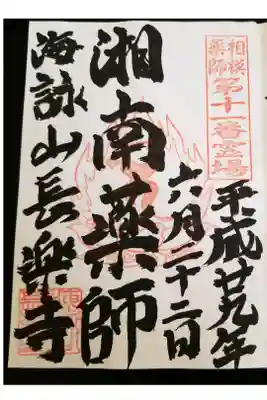 相模
薬師
第十一番霊場
平成廿九年
六月二十二日
湘南薬師
海詠山長楽寺